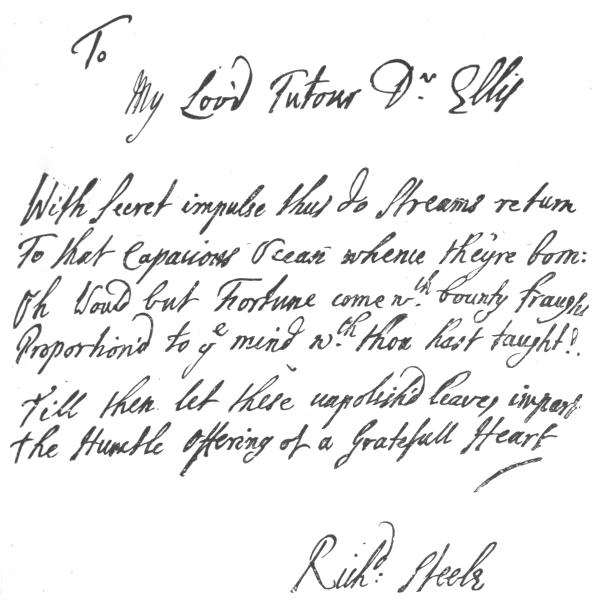 To
My Lov'd Tutour Dr. Ellis
With Secret impulse thus do Streams return
To that Capacious Ocean whence they're born:
Oh Woud but Fortune come wth. bounty fraught
Proportion'd to ye mind wch. thou hast taught!
Till then let these unpolish'd leaves impart
the Humble Offering of a Gratefull Heart
Richd: Steele